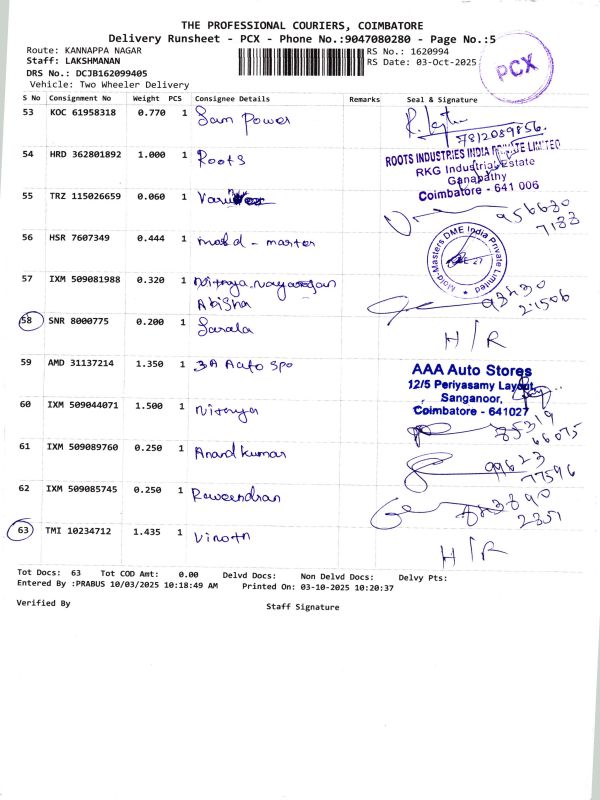 THE PROFESSIONAL COURIERS, COIMBATORE
Delivery Runsheet - PCX - Phone No.:9047080280 - Page No.:5
Route: KANNAPPA NAGAR
RS No.: 1620994
Staff: LAKSHMANAN
RS Date: 03-Oct-2025
DRS No.: DCJB162099405
Vehicle: Two Wheeler Delivery
PCX
S No Consignment No Weight PCS Consignee Details Remarks Seal & Signature
53 KOC 61958318 0.770 1 Sam Power
7812089856.
54 HRD 362801892 1.000 1 Roots
ROOTS INDUSTRIES INDIA PRIVATE LIMITED
RKG Industrial Estate
Ganapathy
Coimbatore - 641 006
55 TRZ 115026659 0.060 1
956630
7133
56 HSR 7607349 0.444 1 mold - master
Mold-Masters DME India Private Limited
57 IXM 509081988 0.320 1 Nithya Nagarajan
Abisha
93430
21506
58 SNR 8000775 0.200 1 Sarala
H/R
59 AMD 31137214 1.350 1 3A Auto Spo
AAA Auto Stores
12/5 Periyasamy Layout,
Sanganoor,
Coimbatore - 641027
60 IXM 509044071 1.500 1 Nithya
85319
66075
61 IXM 509089760 0.250 1 Anandkumar
99623
77596
62 IXM 509085745 0.250 1 Raveendran
2351
63 TMI 10234712 1.435 1 Vinoth
H/R
Tot Docs: 63 Tot COD Amt: 0.00 Delvd Docs: Non Delvd Docs: Delvy Pts:
Entered By :PRABUS 10/03/2025 10:18:49 AM Printed On: 03-10-2025 10:20:37
Verified By
Staff Signature